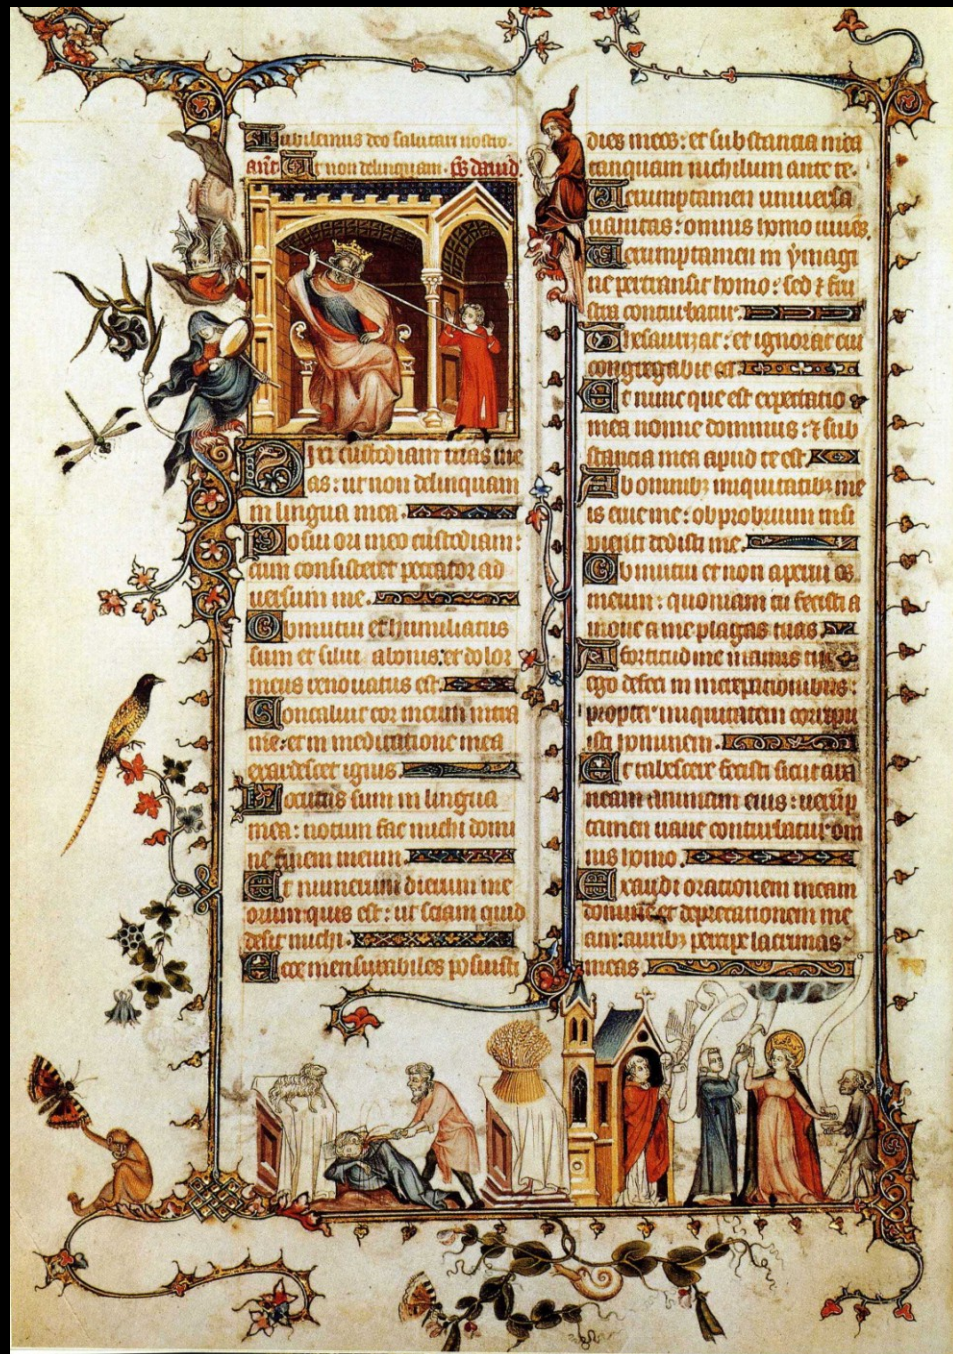 Iubilemus deo salutari nostro
ant. Ut non delinquam. ps dauid.
Dixi custodiam uias me
as: ut non delinquam
in lingua mea.
Posui ori meo custodiam:
cum consisteret peccator ad
uersum me.
Obmutui et humiliatus
sum et silui abonis: et dolor
meus renouatus est.
Concaluit cor meum intra
me: et in meditatione mea
exardescet ignis.
Locutus sum in lingua
mea: notum fac michi domi
ne finem meum.
Et numerum dierum me
orum quis est: ut sciam quid
desit michi.
Ecce mensurabiles posuisti
dies meos: et substancia mea
tanquam nichilum ante te.
Uerumptamen uniuersa
uanitas: omnis homo uiuēs.
Uerumptamen in ymagi
ne pertransit homo: sed ⁊ fru
stra conturbatur.
Thesaurizat: et ignorat cui
congregabit ea.
Et nunc que est expectatio
mea nonne dominus: ⁊ sub
stancia mea apud te est.
Ab omnibꝫ iniquitatibꝫ me
is erue me: obprobrium insi
pienti dedisti me.
Obmutui et non aperui os
meum: quoniam tu fecisti a
moue a me plagas tuas.
A fortitudine manus tue
ego defeci in increpationibus:
propter iniquitatem corripu
isti hominem.
Et tabescere fecisti sicut ara
neam animam eius: uerūp
tamen uane conturbatur om
nis homo.
Exaudi orationem meam
domine et deprecationem me
am: auribꝫ percipe lacrimas
meas.